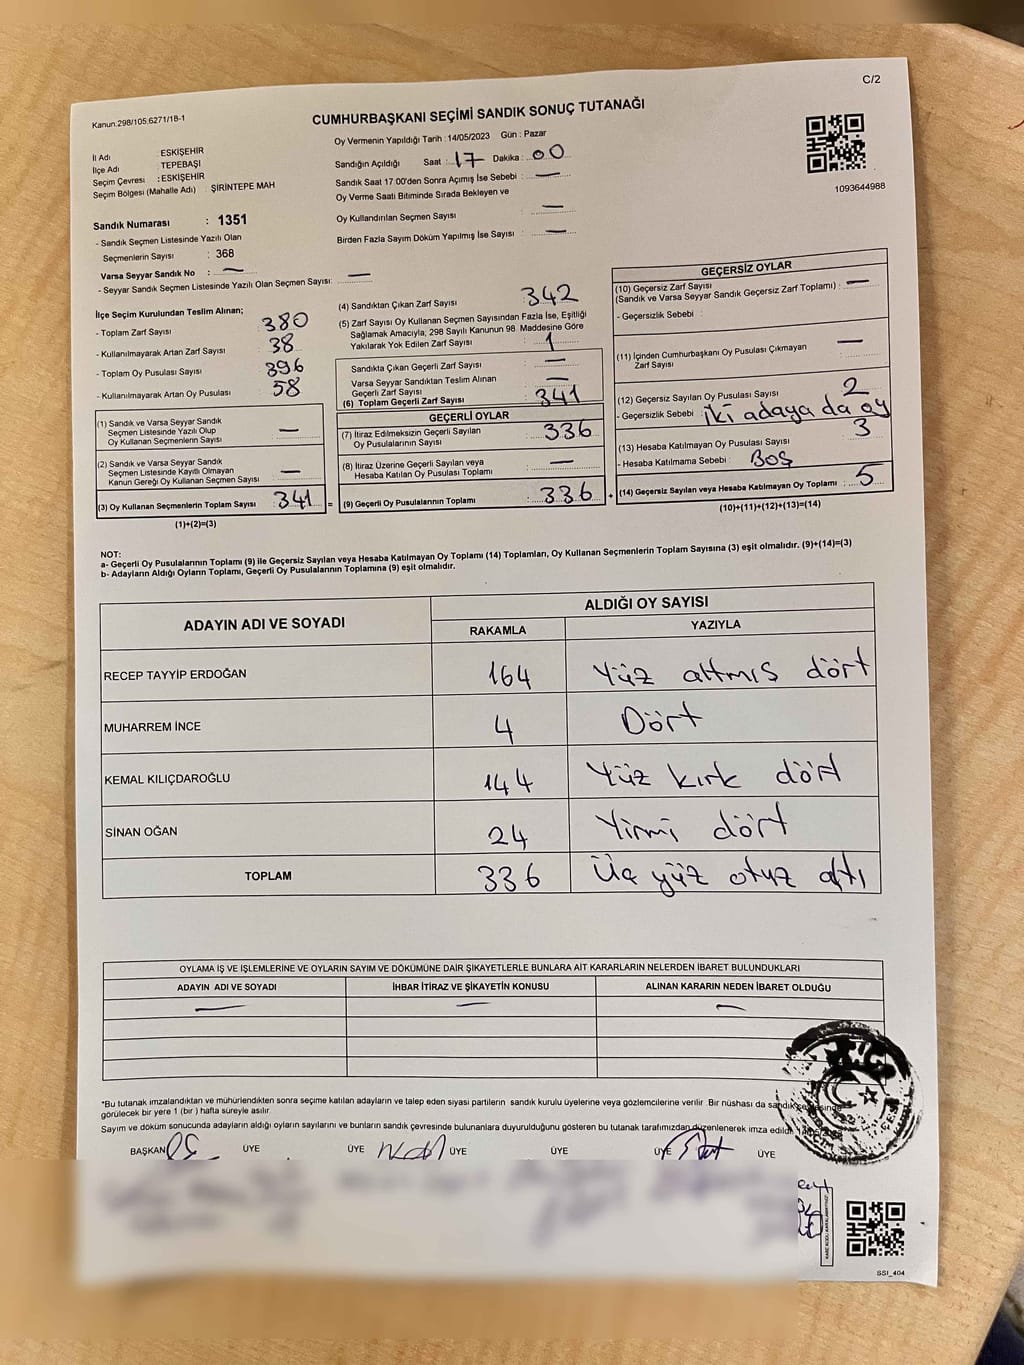 C/2
Kanun.298/105,6271/18-1
CUMHURBAŞKANI SEÇİMİ SANDIK SONUÇ TUTANAĞI
Oy Vermenin Yapıldığı Tarih : 14/05/2023 Gün : Pazar
İl Adı : ESKİŞEHİR
İlçe Adı : TEPEBAŞI
Seçim Çevresi : ESKİŞEHİR
Seçim Bölgesi (Mahalle Adı) : ŞİRİNTEPE MAH
Sandığın Açıldığı Saat : 17 Dakika : 00
Sandık Saat 17:00'den Sonra Açımış İse Sebebi : —
Oy Verme Saati Bitiminde Sırada Bekleyen ve
Oy Kullandırılan Seçmen Sayısı : —
Birden Fazla Sayım Döküm Yapılmış İse Sayısı : —
1093644988
Sandık Numarası : 1351
- Sandık Seçmen Listesinde Yazılı Olan
Seçmenlerin Sayısı : 368
Varsa Seyyar Sandık No : —
- Seyyar Sandık Seçmen Listesinde Yazılı Olan Seçmen Sayısı: —
İlçe Seçim Kurulundan Teslim Alınan;
- Toplam Zarf Sayısı : 380
- Kullanılmayarak Artan Zarf Sayısı : 38
- Toplam Oy Pusulası Sayısı : 396
- Kullanılmayarak Artan Oy Pusulası : 58
(1) Sandık ve Varsa Seyyar Sandık
Seçmen Listesinde Yazılı Olup
Oy Kullanan Seçmenlerin Sayısı : —
(2) Sandık ve Varsa Seyyar Sandık
Seçmen Listesinde Kayıtlı Olmayan
Kanun Gereği Oy Kullanan Seçmen Sayısı : —
(3) Oy Kullanan Seçmenlerin Toplam Sayısı : 341 =
(1)+(2)=(3)
(4) Sandıktan Çıkan Zarf Sayısı : 342
(5) Zarf Sayısı Oy Kullanan Seçmen Sayısından Fazla İse, Eşitliği
Sağlamak Amacıyla, 298 Sayılı Kanunun 98. Maddesine Göre
Yakılarak Yok Edilen Zarf Sayısı : 1
Sandıkta Çıkan Geçerli Zarf Sayısı : —
Varsa Seyyar Sandıktan Teslim Alınan
Geçerli Zarf Sayısı : —
(6) Toplam Geçerli Zarf Sayısı : 341
GEÇERLİ OYLAR
(7) İtiraz Edilmeksizin Geçerli Sayılan
Oy Pusulalarının Sayısı : 336
(8) İtiraz Üzerine Geçerli Sayılan veya
Hesaba Katılan Oy Pusulası Toplamı : —
(9) Geçerli Oy Pusulalarının Toplamı : 336 +
GEÇERSİZ OYLAR
(10) Geçersiz Zarf Sayısı
(Sandık ve Varsa Seyyar Sandık Geçersiz Zarf Toplamı) : —
- Geçersizlik Sebebi :
(11) İçinden Cumhurbaşkanı Oy Pusulası Çıkmayan
Zarf Sayısı : —
(12) Geçersiz Sayılan Oy Pusulası Sayısı : 2
- Geçersizlik Sebebi : iki adaya da oy
(13) Hesaba Katılmayan Oy Pusulası Sayısı : 3
- Hesaba Katılmama Sebebi : Boş
(14) Geçersiz Sayılan veya Hesaba Katılmayan Oy Toplamı : 5
(10)+(11)+(12)+(13)=(14)
NOT:
a- Geçerli Oy Pusulalarının Toplamı (9) ile Geçersiz Sayılan veya Hesaba Katılmayan Oy Toplamı (14) Toplamları, Oy Kullanan Seçmenlerin Toplam Sayısına (3) eşit olmalıdır. (9)+(14)=(3)
b- Adayların Aldığı Oyların Toplamı, Geçerli Oy Pusulalarının Toplamına (9) eşit olmalıdır.
ADAYIN ADI VE SOYADI ALDIĞI OY SAYISI
RAKAMLA YAZIYLA
RECEP TAYYİP ERDOĞAN 164 Yüz altmış dört
MUHARREM İNCE 4 Dört
KEMAL KILIÇDAROĞLU 144 Yüz kırk dört
SİNAN OĞAN 24 Yirmi dört
TOPLAM 336 Üç yüz otuz altı
OYLAMA İŞ VE İŞLEMLERİNE VE OYLARIN SAYIM VE DÖKÜMÜNE DAİR ŞİKAYETLERLE BUNLARA AİT KARARLARIN NELERDEN İBARET BULUNDUKLARI
ADAYIN ADI VE SOYADI İHBAR İTİRAZ VE ŞİKAYETİN KONUSU ALINAN KARARIN NEDEN İBARET OLDUĞU
— — —
*Bu tutanak imzalandıktan ve mühürlendikten sonra seçime katılan adayların ve talep eden siyasi partilerin sandık kurulu üyelerine veya gözlemcilerine verilir. Bir nüshası da sandık çevresinde
görülecek bir yere 1 (bir) hafta süreyle asılır.
Sayım ve döküm sonucunda adayların aldığı oyların sayılarını ve bunların sandık çevresinde bulunanlara duyurulduğunu gösteren bu tutanak tarafımızdan düzenlenerek imza edildi.
BAŞKAN ÜYE ÜYE ÜYE ÜYE ÜYE ÜYE
SSI_404